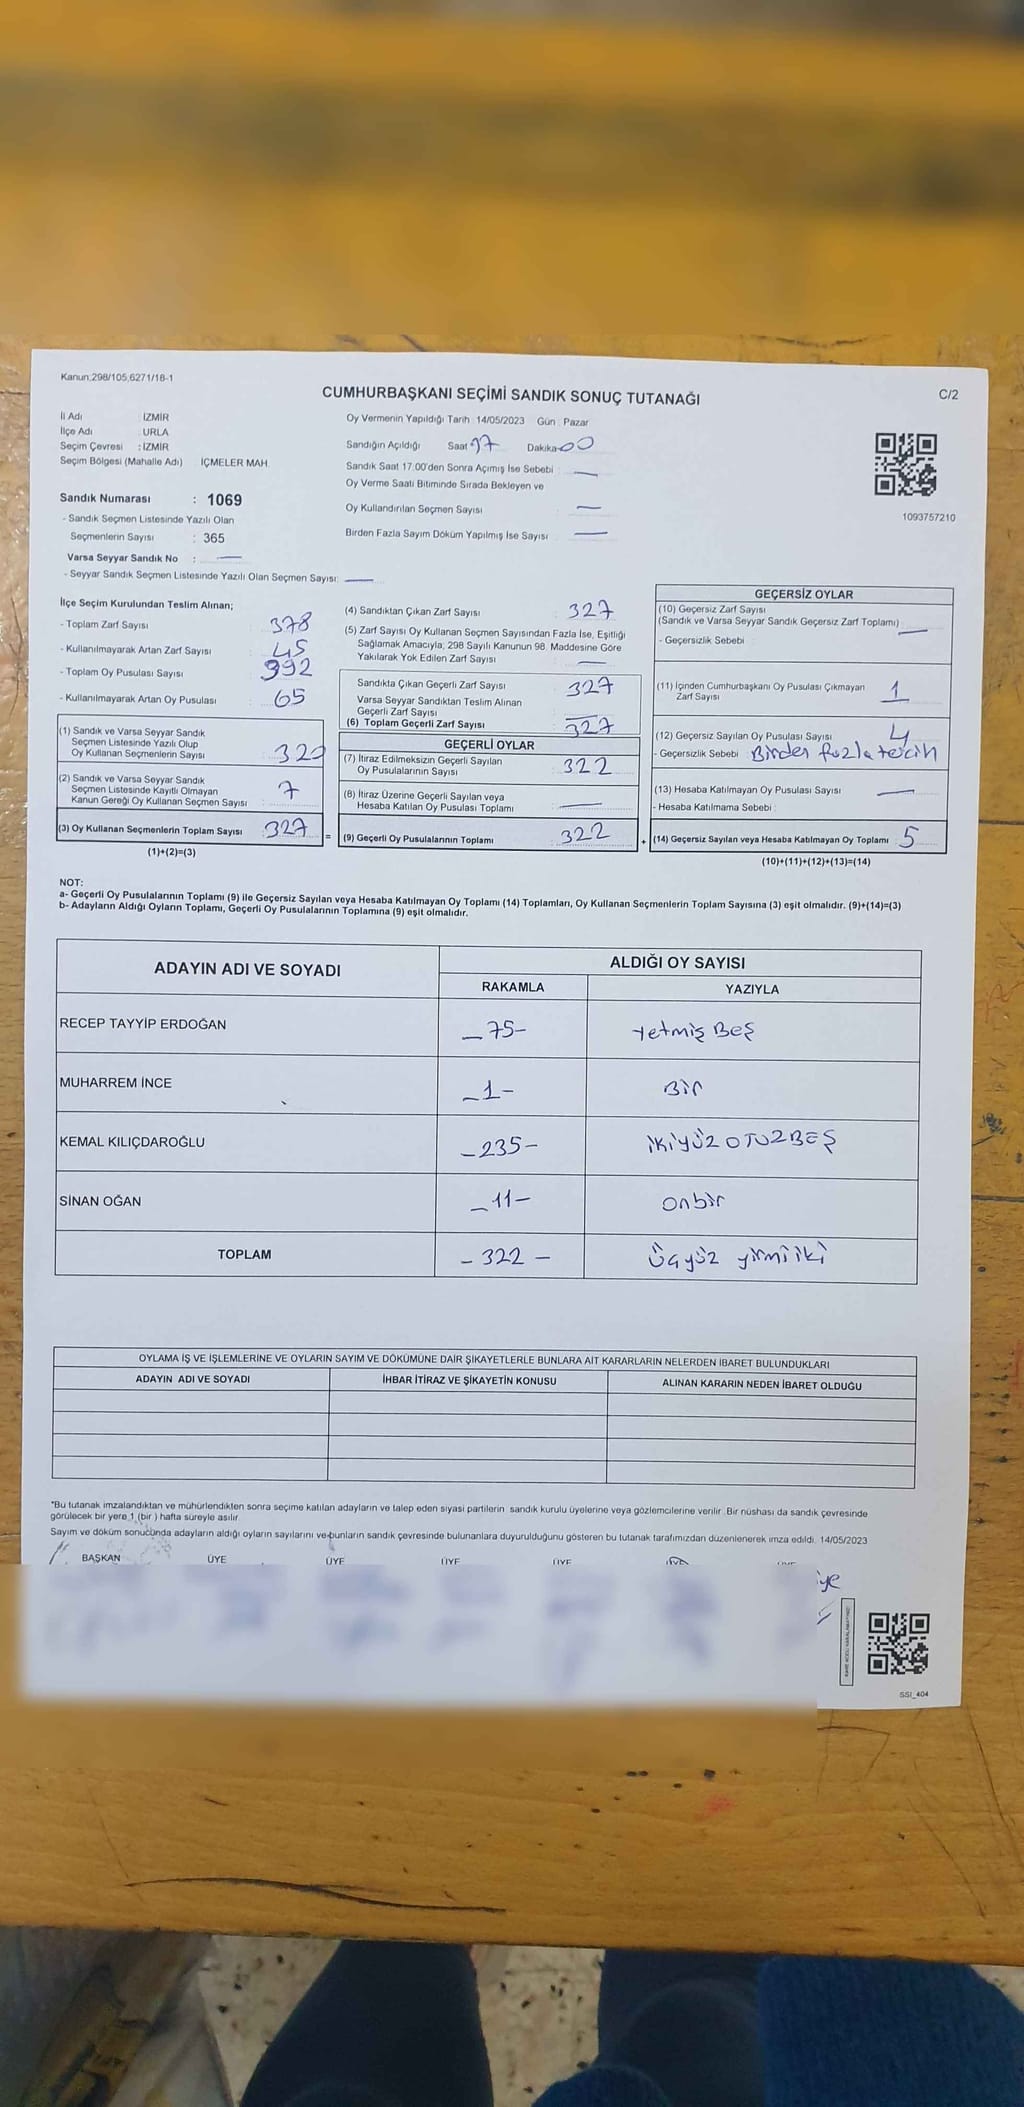 Kanun;298/105,6271/18-1
CUMHURBAŞKANI SEÇİMİ SANDIK SONUÇ TUTANAĞI
C/2
İl Adı : İZMİR
İlçe Adı : URLA
Seçim Çevresi : İZMİR
Seçim Bölgesi (Mahalle Adı) İÇMELER MAH.
Sandık Numarası : 1069
- Sandık Seçmen Listesinde Yazılı Olan
Seçmenlerin Sayısı : 365
Varsa Seyyar Sandık No : —
- Seyyar Sandık Seçmen Listesinde Yazılı Olan Seçmen Sayısı: —
Oy Vermenin Yapıldığı Tarih : 14/05/2023 Gün : Pazar
Sandığın Açıldığı Saat 17 Dakika 00
Sandık Saat 17:00'den Sonra Açımış İse Sebebi : —
Oy Verme Saati Bitiminde Sırada Bekleyen ve
Oy Kullandırılan Seçmen Sayısı —
Birden Fazla Sayım Döküm Yapılmış İse Sayısı —
1093757210
İlçe Seçim Kurulundan Teslim Alınan;
- Toplam Zarf Sayısı : 378
- Kullanılmayarak Artan Zarf Sayısı : 45
- Toplam Oy Pusulası Sayısı : 392
- Kullanılmayarak Artan Oy Pusulası : 65
(1) Sandık ve Varsa Seyyar Sandık
Seçmen Listesinde Yazılı Olup
Oy Kullanan Seçmenlerin Sayısı
(2) Sandık ve Varsa Seyyar Sandık
Seçmen Listesinde Kayıtlı Olmayan
Kanun Gereği Oy Kullanan Seçmen Sayısı : 7
(3) Oy Kullanan Seçmenlerin Toplam Sayısı : 327
(1)+(2)=(3)
(4) Sandıktan Çıkan Zarf Sayısı : 327
(5) Zarf Sayısı Oy Kullanan Seçmen Sayısından Fazla İse, Eşitliği
Sağlamak Amacıyla; 298 Sayılı Kanunun 98. Maddesine Göre
Yakılarak Yok Edilen Zarf Sayısı : —
Sandıkta Çıkan Geçerli Zarf Sayısı : 327
Varsa Seyyar Sandıktan Teslim Alınan
Geçerli Zarf Sayısı : —
(6) Toplam Geçerli Zarf Sayısı : 327
GEÇERLİ OYLAR
(7) İtiraz Edilmeksizin Geçerli Sayılan
Oy Pusulalarının Sayısı : 322
(8) İtiraz Üzerine Geçerli Sayılan veya
Hesaba Katılan Oy Pusulası Toplamı : —
= (9) Geçerli Oy Pusulalarının Toplamı : 322
GEÇERSİZ OYLAR
(10) Geçersiz Zarf Sayısı
(Sandık ve Varsa Seyyar Sandık Geçersiz Zarf Toplamı) : —
- Geçersizlik Sebebi :
(11) İçinden Cumhurbaşkanı Oy Pusulası Çıkmayan
Zarf Sayısı : 1
(12) Geçersiz Sayılan Oy Pusulası Sayısı : 4
- Geçersizlik Sebebi : Birden fazla tercih
(13) Hesaba Katılmayan Oy Pusulası Sayısı : —
- Hesaba Katılmama Sebebi :
+ (14) Geçersiz Sayılan veya Hesaba Katılmayan Oy Toplamı : 5
(10)+(11)+(12)+(13)=(14)
NOT:
a- Geçerli Oy Pusulalarının Toplamı (9) ile Geçersiz Sayılan veya Hesaba Katılmayan Oy Toplamı (14) Toplamları, Oy Kullanan Seçmenlerin Toplam Sayısına (3) eşit olmalıdır. (9)+(14)=(3)
b- Adayların Aldığı Oyların Toplamı, Geçerli Oy Pusulalarının Toplamına (9) eşit olmalıdır.
ADAYIN ADI VE SOYADI
ALDIĞI OY SAYISI
RAKAMLA YAZIYLA
RECEP TAYYİP ERDOĞAN –75– Yetmiş Beş
MUHARREM İNCE –1– Bir
KEMAL KILIÇDAROĞLU –235– İKİYÜZ OTUZBEŞ
SİNAN OĞAN –11– Onbir
TOPLAM –322– Üçyüz yirmiiki
OYLAMA İŞ VE İŞLEMLERİNE VE OYLARIN SAYIM VE DÖKÜMÜNE DAİR ŞİKAYETLERLE BUNLARA AİT KARARLARIN NELERDEN İBARET BULUNDUKLARI
ADAYIN ADI VE SOYADI İHBAR İTİRAZ VE ŞİKAYETİN KONUSU ALINAN KARARIN NEDEN İBARET OLDUĞU
*Bu tutanak imzalandıktan ve mühürlendikten sonra seçime katılan adayların ve talep eden siyasi partilerin sandık kurulu üyelerine veya gözlemcilerine verilir. Bir nüshası da sandık çevresinde
görülecek bir yere 1 (bir ) hafta süreyle asılır.
Sayım ve döküm sonucunda adayların aldığı oyların sayılarını ve bunların sandık çevresinde bulunanlara duyurulduğunu gösteren bu tutanak tarafımızdan düzenlenerek imza edildi. 14/05/2023
BAŞKAN ÜYE ÜYE ÜYE ÜYE
SSI_404